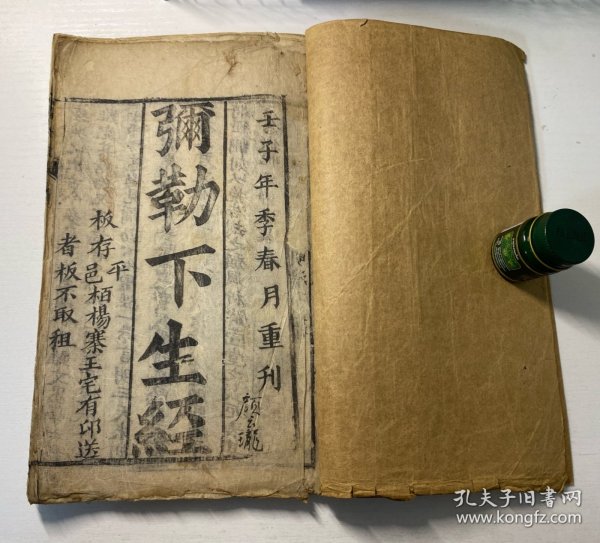 壬子年季春月重刊
彌勒下生經
平
板存邑栢楊寨王宅有印送
者板不取租
孔夫子旧书网
www.kongfz.com